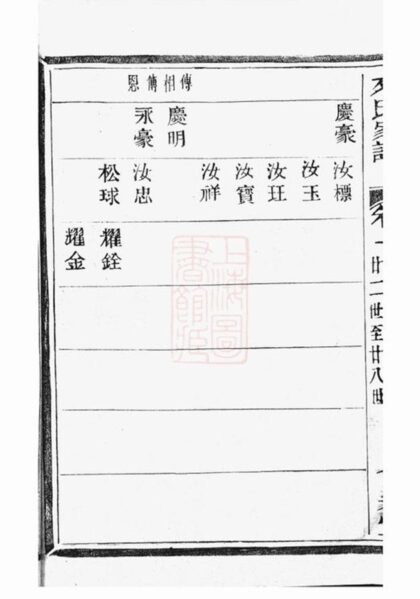 氏家譜
廿二世至廿八世
傳相
傳恩
慶豪
慶明
永豪
汝標
汝玉
汝玨
汝寶
汝祥
汝忠
松球
耀銓
耀金
上海圖
書館藏